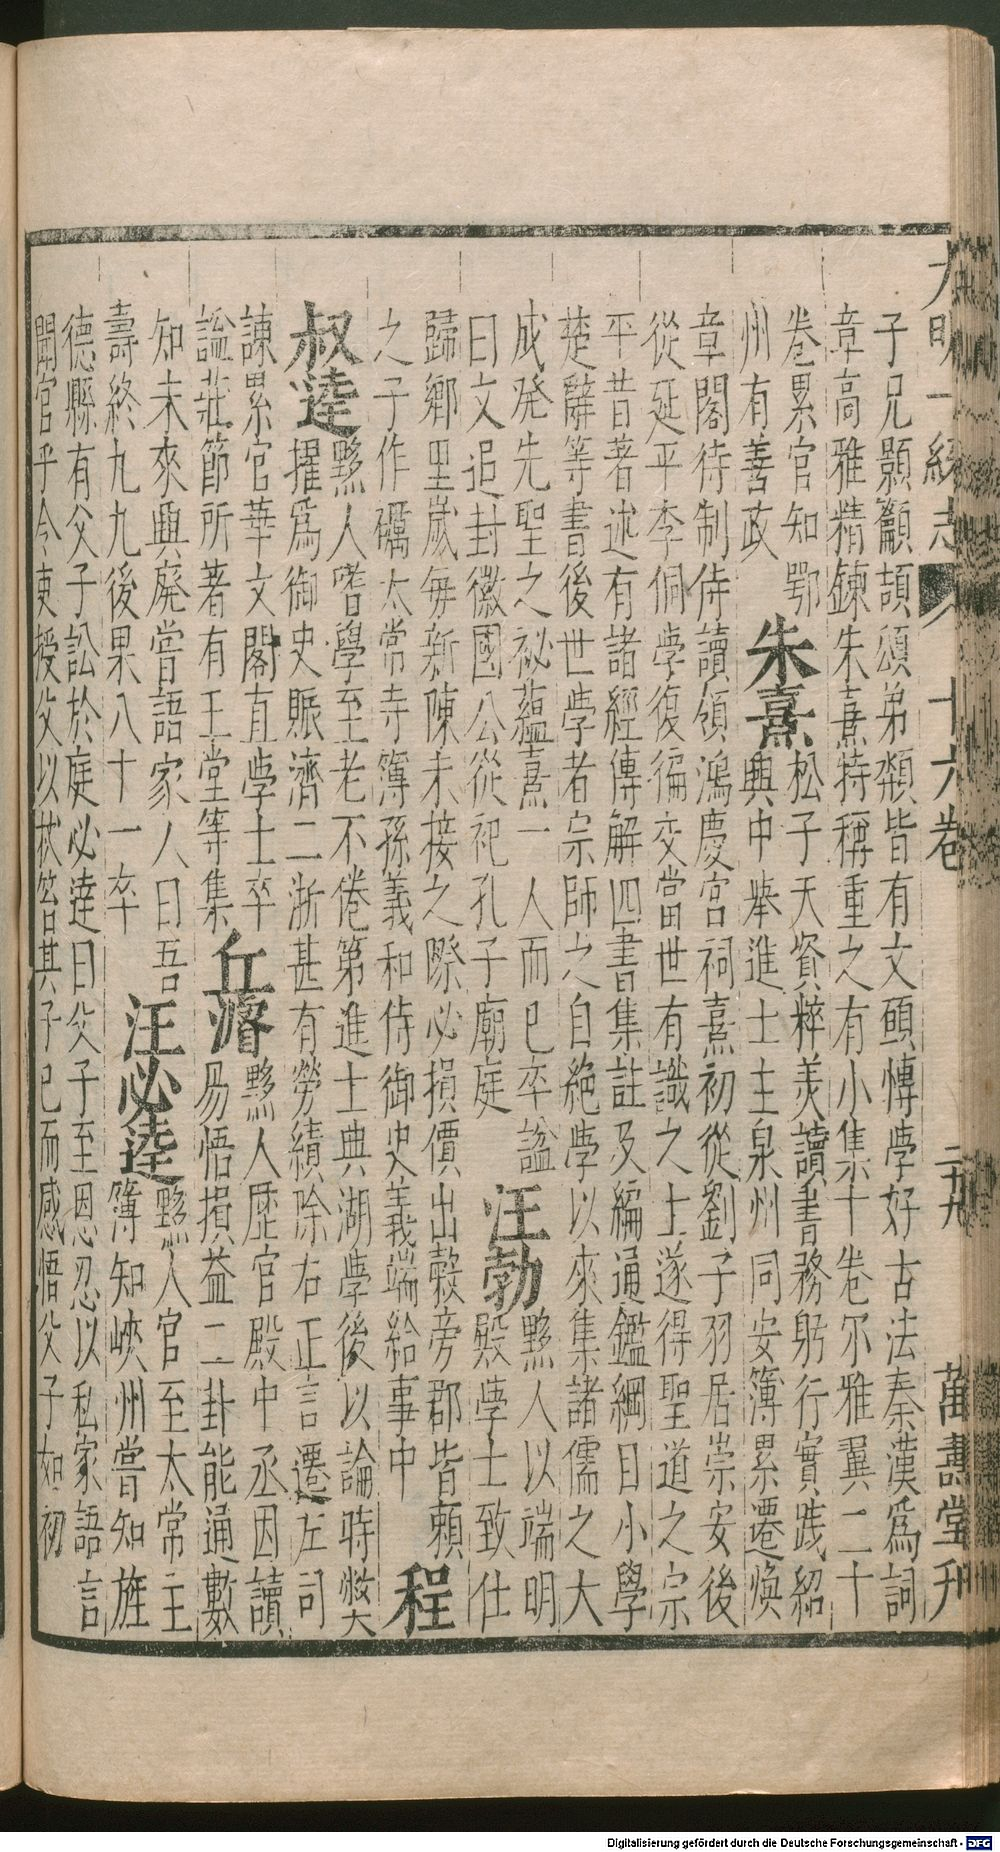 大明一統志 十六卷 二十九 萬壽堂刊
子兄顥籲頡頌弟𩔖皆有文頤慱學好古法秦漢爲詞
章高雅精鍊朱熹特稱重之有小集十卷尔雅翼二十
卷累官知鄂
州有善政 朱熹 松子天資粹美讀書務躬行實踐紹
興中舉進士主泉州同安簿累遷煥
章閣待制侍讀領鴻慶宮祠熹初從劉子羽居崇安後
從延平李侗學復徧交當世有識之士遂得聖道之宗
平昔著述有諸經傳解四書集註及編通鑑綱目小學
楚辭等書後世學者宗師之自絶學以來集諸儒之大
成発先聖之祕藴熹一人而已卒諡
曰文追封徽國公從祀孔子廟庭 汪勃 黟人以端明
殿學士致仕
歸鄉里嵗毎新陳未接之際必損價出榖旁郡皆頼
之子作礪太常寺簿孫義和侍御史義端給事中 程
叔逵 黟人嗜學至老不倦第進士典湖學後以論時弊
擢爲御史賑濟二浙甚有勞績除右正言遷左司
諫累官華文閣直學士卒
諡莊節所著有玉堂等集 丘濬 黟人歷官殿中丞因讀
易悟損益二卦能通數
知未來興廢嘗語家人曰吾
壽終九九後果八十一卒 汪必逵 黟人官至太常主
簿知峽州嘗知旌
德縣有父子訟於庭必逵曰父子至恩忍以私家語言
聞官乎今吏授父以杖笞其子已而感悟父子如初
Digitalisierung gefördert durch die Deutsche Forschungsgemeinschaft - DFG